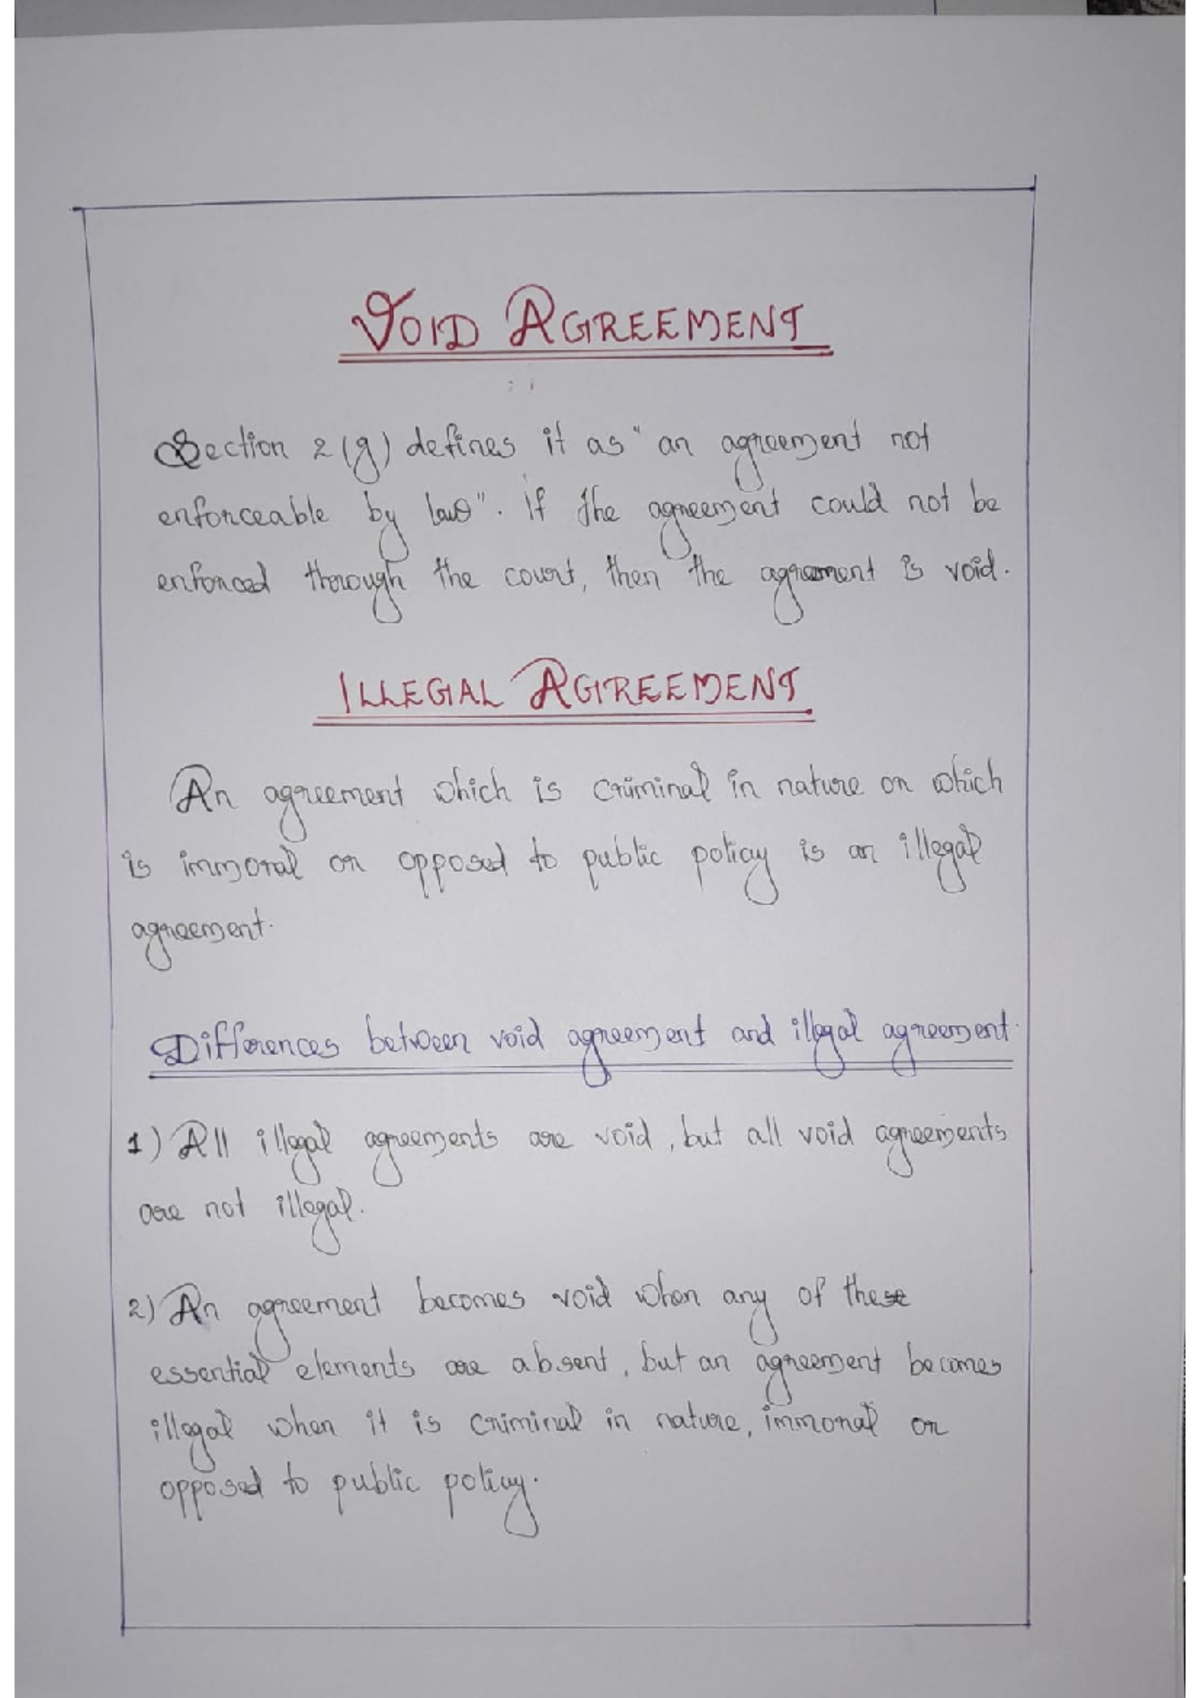 VOID AGREEMENT
Section 2(g) defines it as "an agreement not
enforceable by law". If the agreement could not be
enforced through the court, then the agreement is void.
ILLEGAL AGREEMENT
An agreement which is criminal in nature or which
is immoral or opposed to public policy is an illegal
agreement.
Differences between void agreement and illegal agreement.
1) All illegal agreements are void, but all void agreements
are not illegal.
2) An agreement becomes void when any of these
essential elements are absent, but an agreement becomes
illegal when it is criminal in nature, immoral or
opposed to public policy.